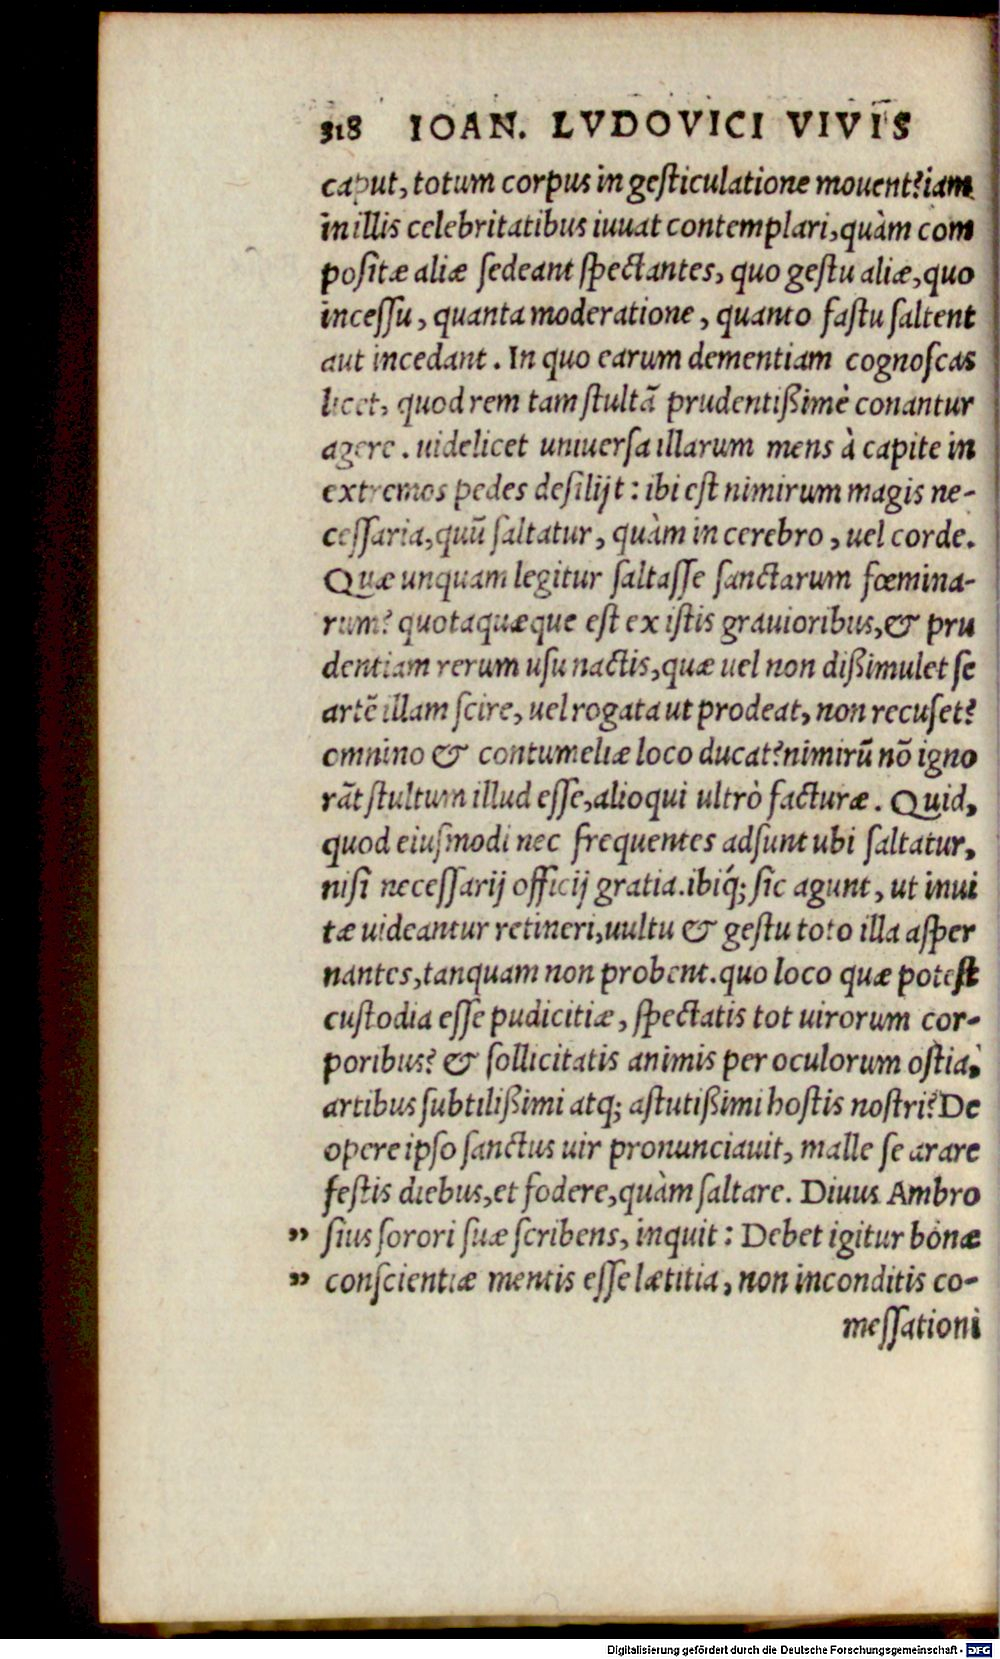 318 IOAN. LVDOVICI VIVIS
caput, totum corpus in gesticulatione mouent? iam
in illis celebritatibus iuuat contemplari, quàm com
positæ aliæ sedeant spectantes, quo gestu aliæ, quo
incessu, quanta moderatione, quanto fastu saltent
aut incedant. In quo earum dementiam cognoscas
licet, quod rem tam stultã prudentißimè conantur
agere. uidelicet uniuersa illarum mens à capite in
extremos pedes desilijt: ibi est nimirum magis ne-
cessaria, quũ saltatur, quàm in cerebro, uel corde.
Quæ unquam legitur saltasse sanctarum fœmina-
rum? quotaquæque est ex istis grauioribus, & pru
dentiam rerum usu nactis, quæ uel non dißimulet se
artẽ illam scire, uel rogata ut prodeat, non recuset?
omnino & contumeliæ loco ducat? nimirũ nõ igno
rãt stultum illud esse, alioqui ultrò facturæ. Quid,
quod eiusmodi nec frequentes adsunt ubi saltatur,
nisi necessarij officij gratia. ibiq́; sic agunt, ut inui
tæ uideantur retineri, uultu & gestu toto illa asper
nantes, tanquam non probent. quo loco quæ potest
custodia esse pudicitiæ, spectatis tot uirorum cor-
poribus? & sollicitatis animis per oculorum ostia,
artibus subtilißimi atq; astutißimi hostis nostri? De
opere ipso sanctus uir pronunciauit, malle se arare
festis diebus, et fodere, quàm saltare. Diuus Ambro
„ sius sorori suæ scribens, inquit: Debet igitur bonæ
„ conscientiæ mentis esse lætitia, non inconditis co-
messationi
Digitalisierung gefördert durch die Deutsche Forschungsgemeinschaft - DFG